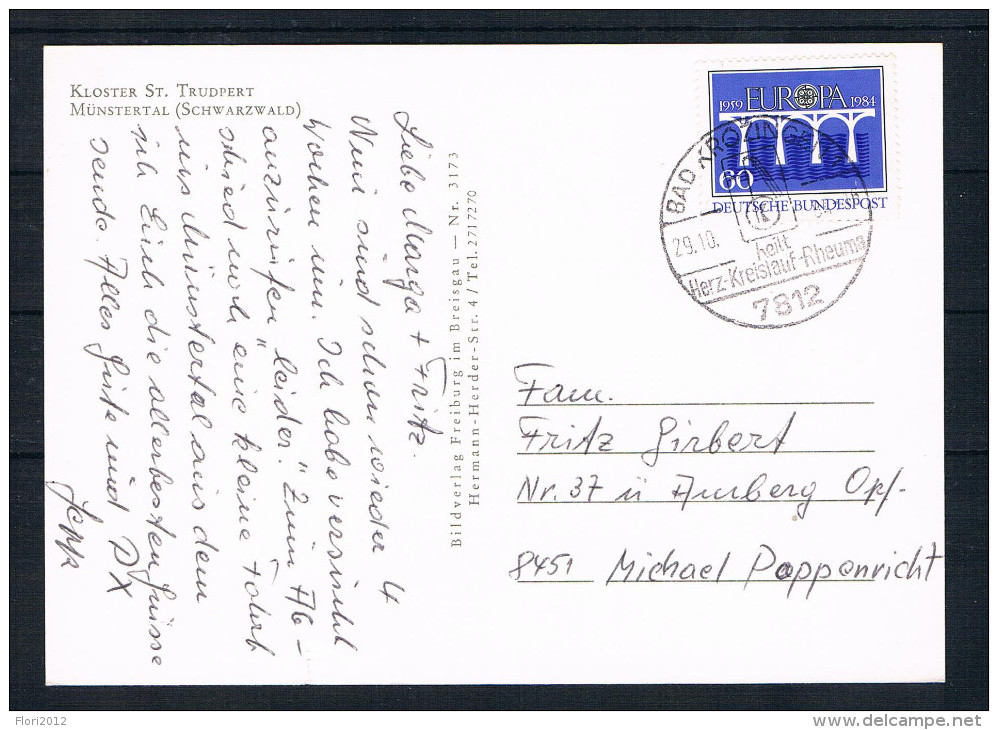 KLOSTER ST. TRUDPERT
MÜNSTERTAL (SCHWARZWALD)
Liebe Marga + Fritz.
Nun sind schon wieder 4
Wochen um. Ich habe versucht
anzurufen "leider." Zum Ab-
schied noch eine kleine Fahrt
ins Münstertal aus dem
ich Euch die allerbesten Grüsse
sende. Alles Gute und
Bildverlag Freiburg im Breisgau — Nr. 3173
Hermann-Herder-Str. 4 / Tel. 2717270
1959 EUROPA 1984
60
DEUTSCHE BUNDESPOST
BAD KROZINGEN
29.10.
heilt
Herz-Kreislauf-Rheuma
7812
Fam.
Fritz Girbert
Nr. 37 ü Amberg Opf.
8451 Michael Poppenricht
Flori2012
delcampe.net